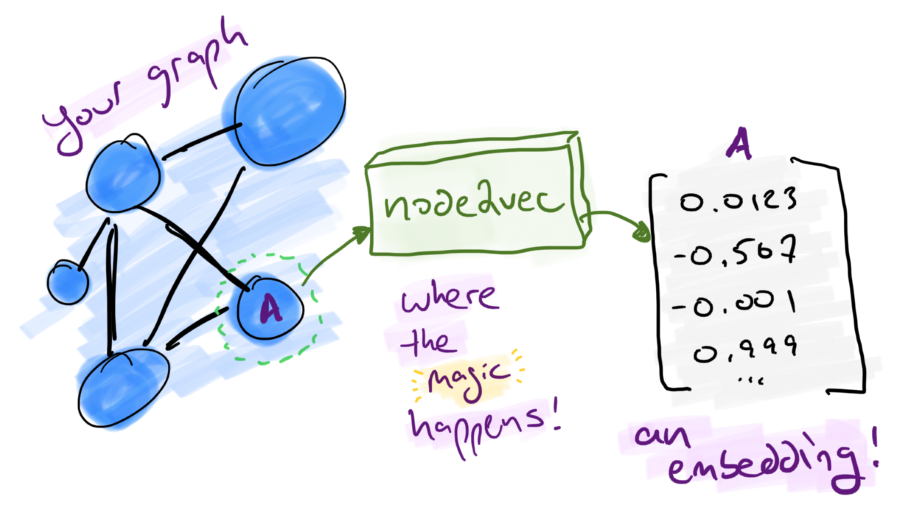 your graph
A
node2vec
where
the
magic
happens!
A
0.0123
-0.567
-0.001
0.999
...
an
embedding!